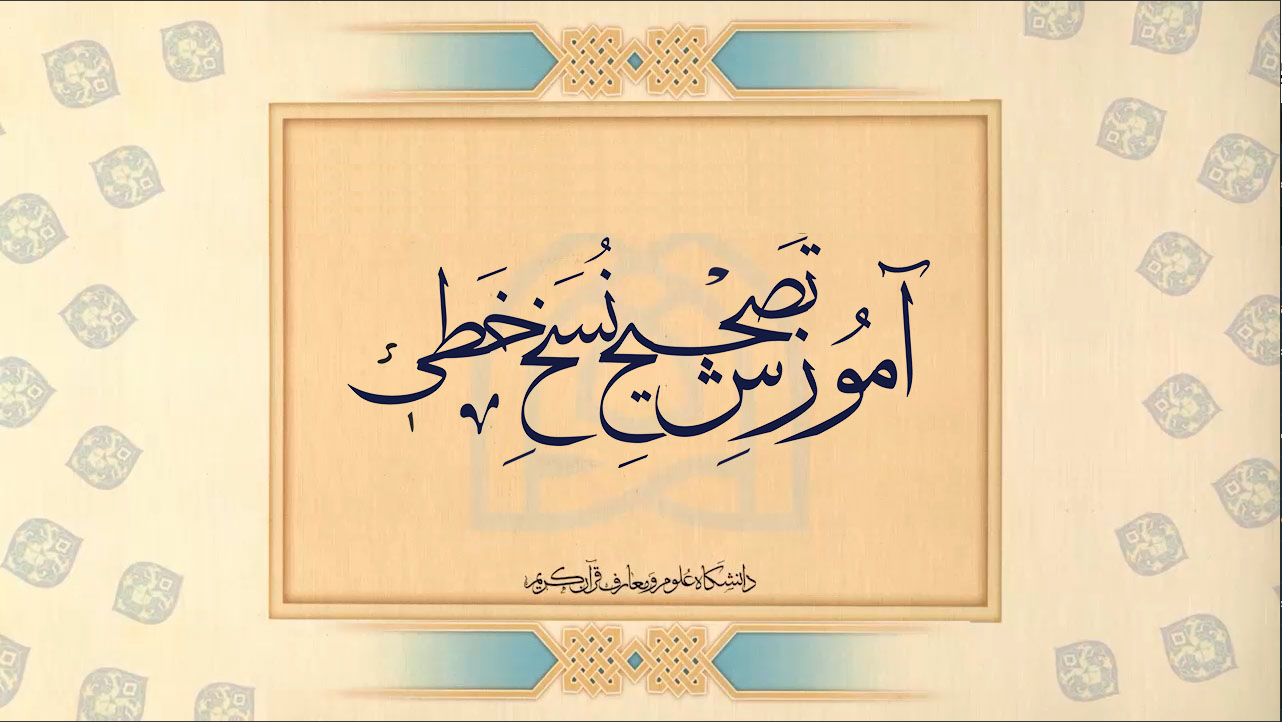 آموزش تصحیح نسخ خطی
دانشگاه علوم و معارف قرآن کریم